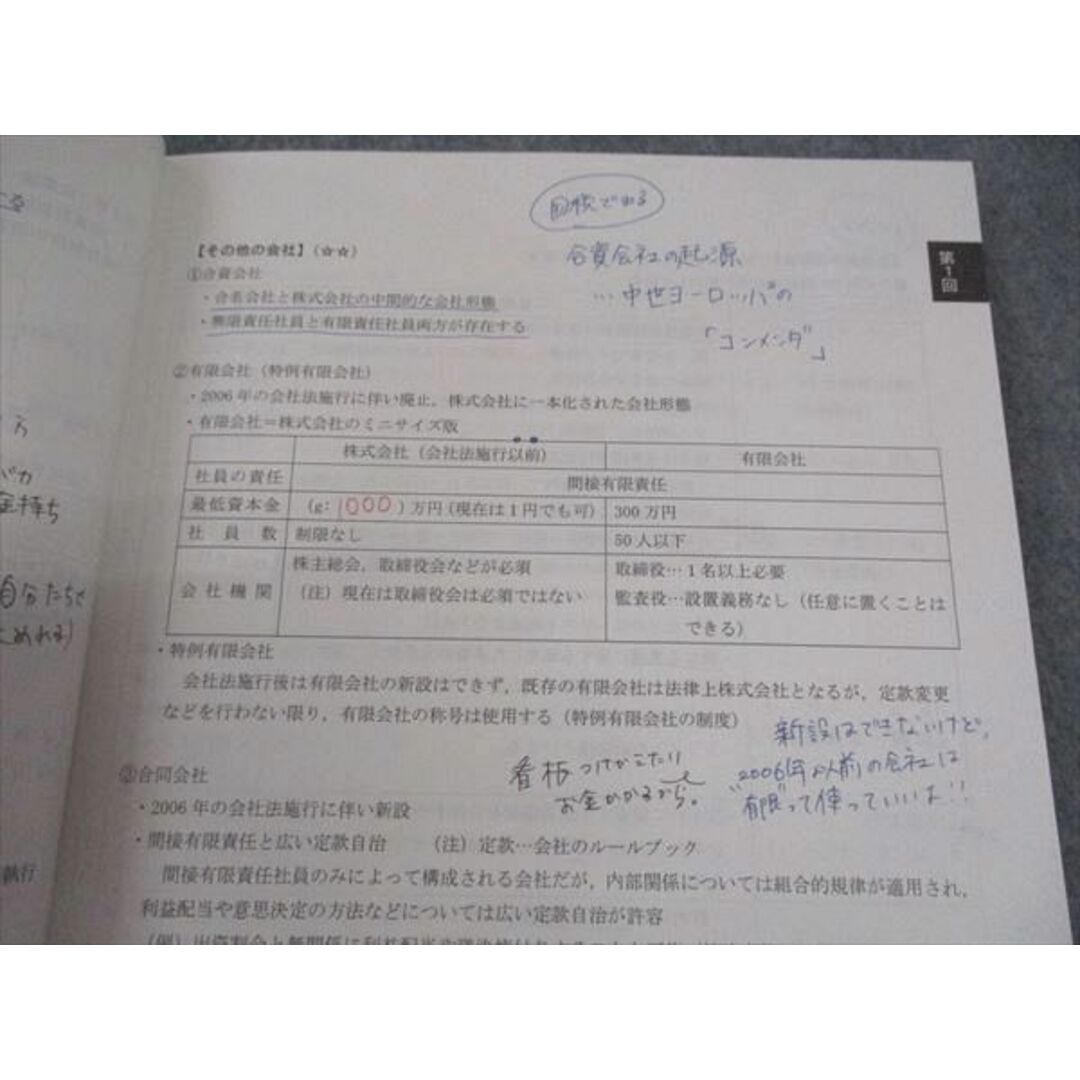 第1回
【その他の会社】(☆☆)
合資会社の起源
①合資会社
・合名会社と株式会社の中間的な会社形態
…中世ヨーロッパの
・無限責任社員と有限責任社員両方が存在する
「コンメンダ」
②有限会社（特例有限会社）
・2006年の会社法施行に伴い廃止，株式会社に一本化された会社形態
・有限会社＝株式会社のミニサイズ版
株式会社（会社法施行以前） 有限会社
社員の責任 間接有限責任
最低資本金 (g: 1000 ) 万円（現在は1円でも可） 300万円
社員数 制限なし 50人以下
会社機関 株主総会，取締役会などが必須 取締役…1名以上必要
（注）現在は取締役会は必須ではない 監査役…設置義務なし（任意に置くことは
できる）
・特例有限会社
会社法施行後は有限会社の新設はできず，既存の有限会社は法律上株式会社となるが，定款変更
などを行わない限り，有限会社の称号は使用する（特例有限会社の制度）
新設はできないけど，
2006年以前の会社は
"有限"って使っていいよ!!
看板つけかえたり
お金かかるから。
③合同会社
・2006年の会社法施行に伴い新設
・間接有限責任と広い定款自治 （注）定款…会社のルールブック
間接有限責任社員のみによって構成される会社だが，内部関係については組合的規律が適用され，
利益配当や意思決定の方法などについては広い定款自治が許容
金持ち
自分たちで
執行